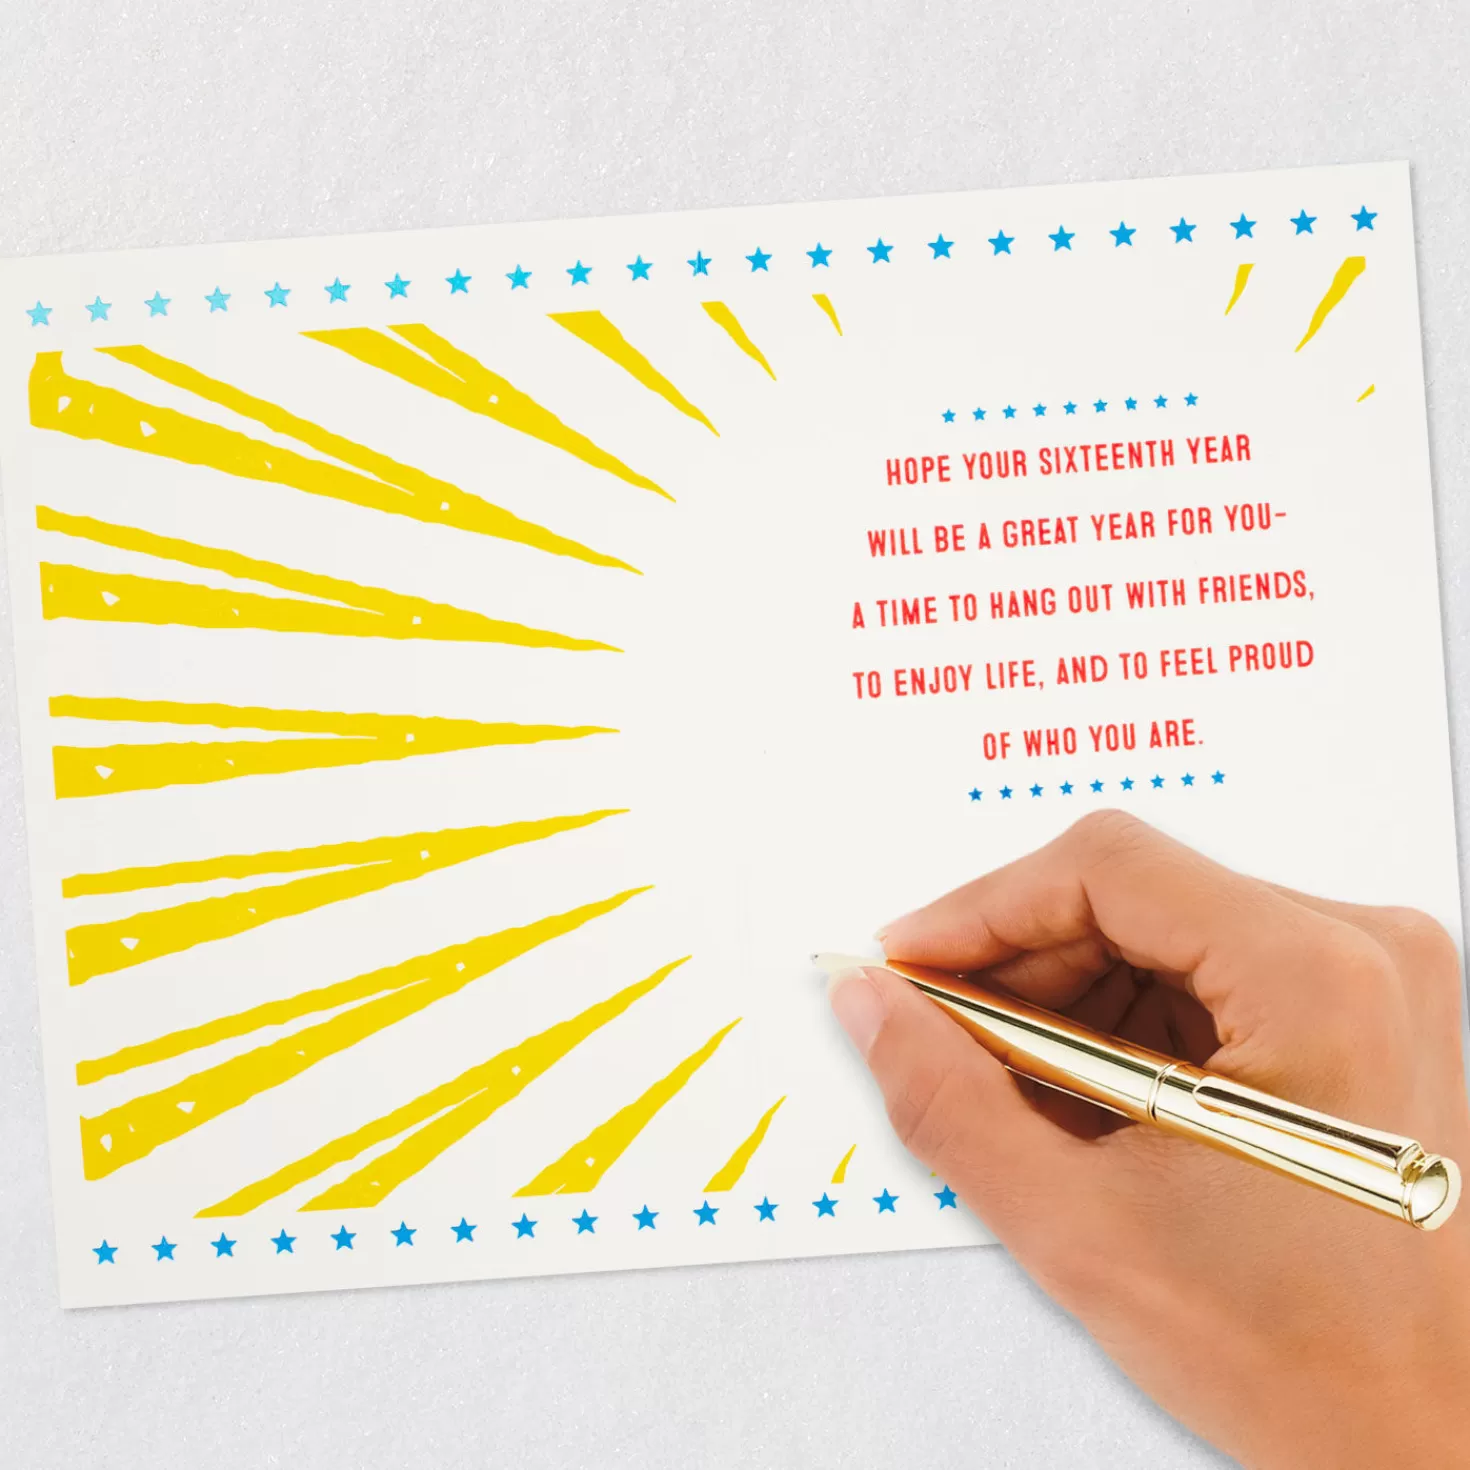 HOPE YOUR SIXTEENTH YEAR
WILL BE A GREAT YEAR FOR YOU–
A TIME TO HANG OUT WITH FRIENDS,
TO ENJOY LIFE, AND TO FEEL PROUD
OF WHO YOU ARE.